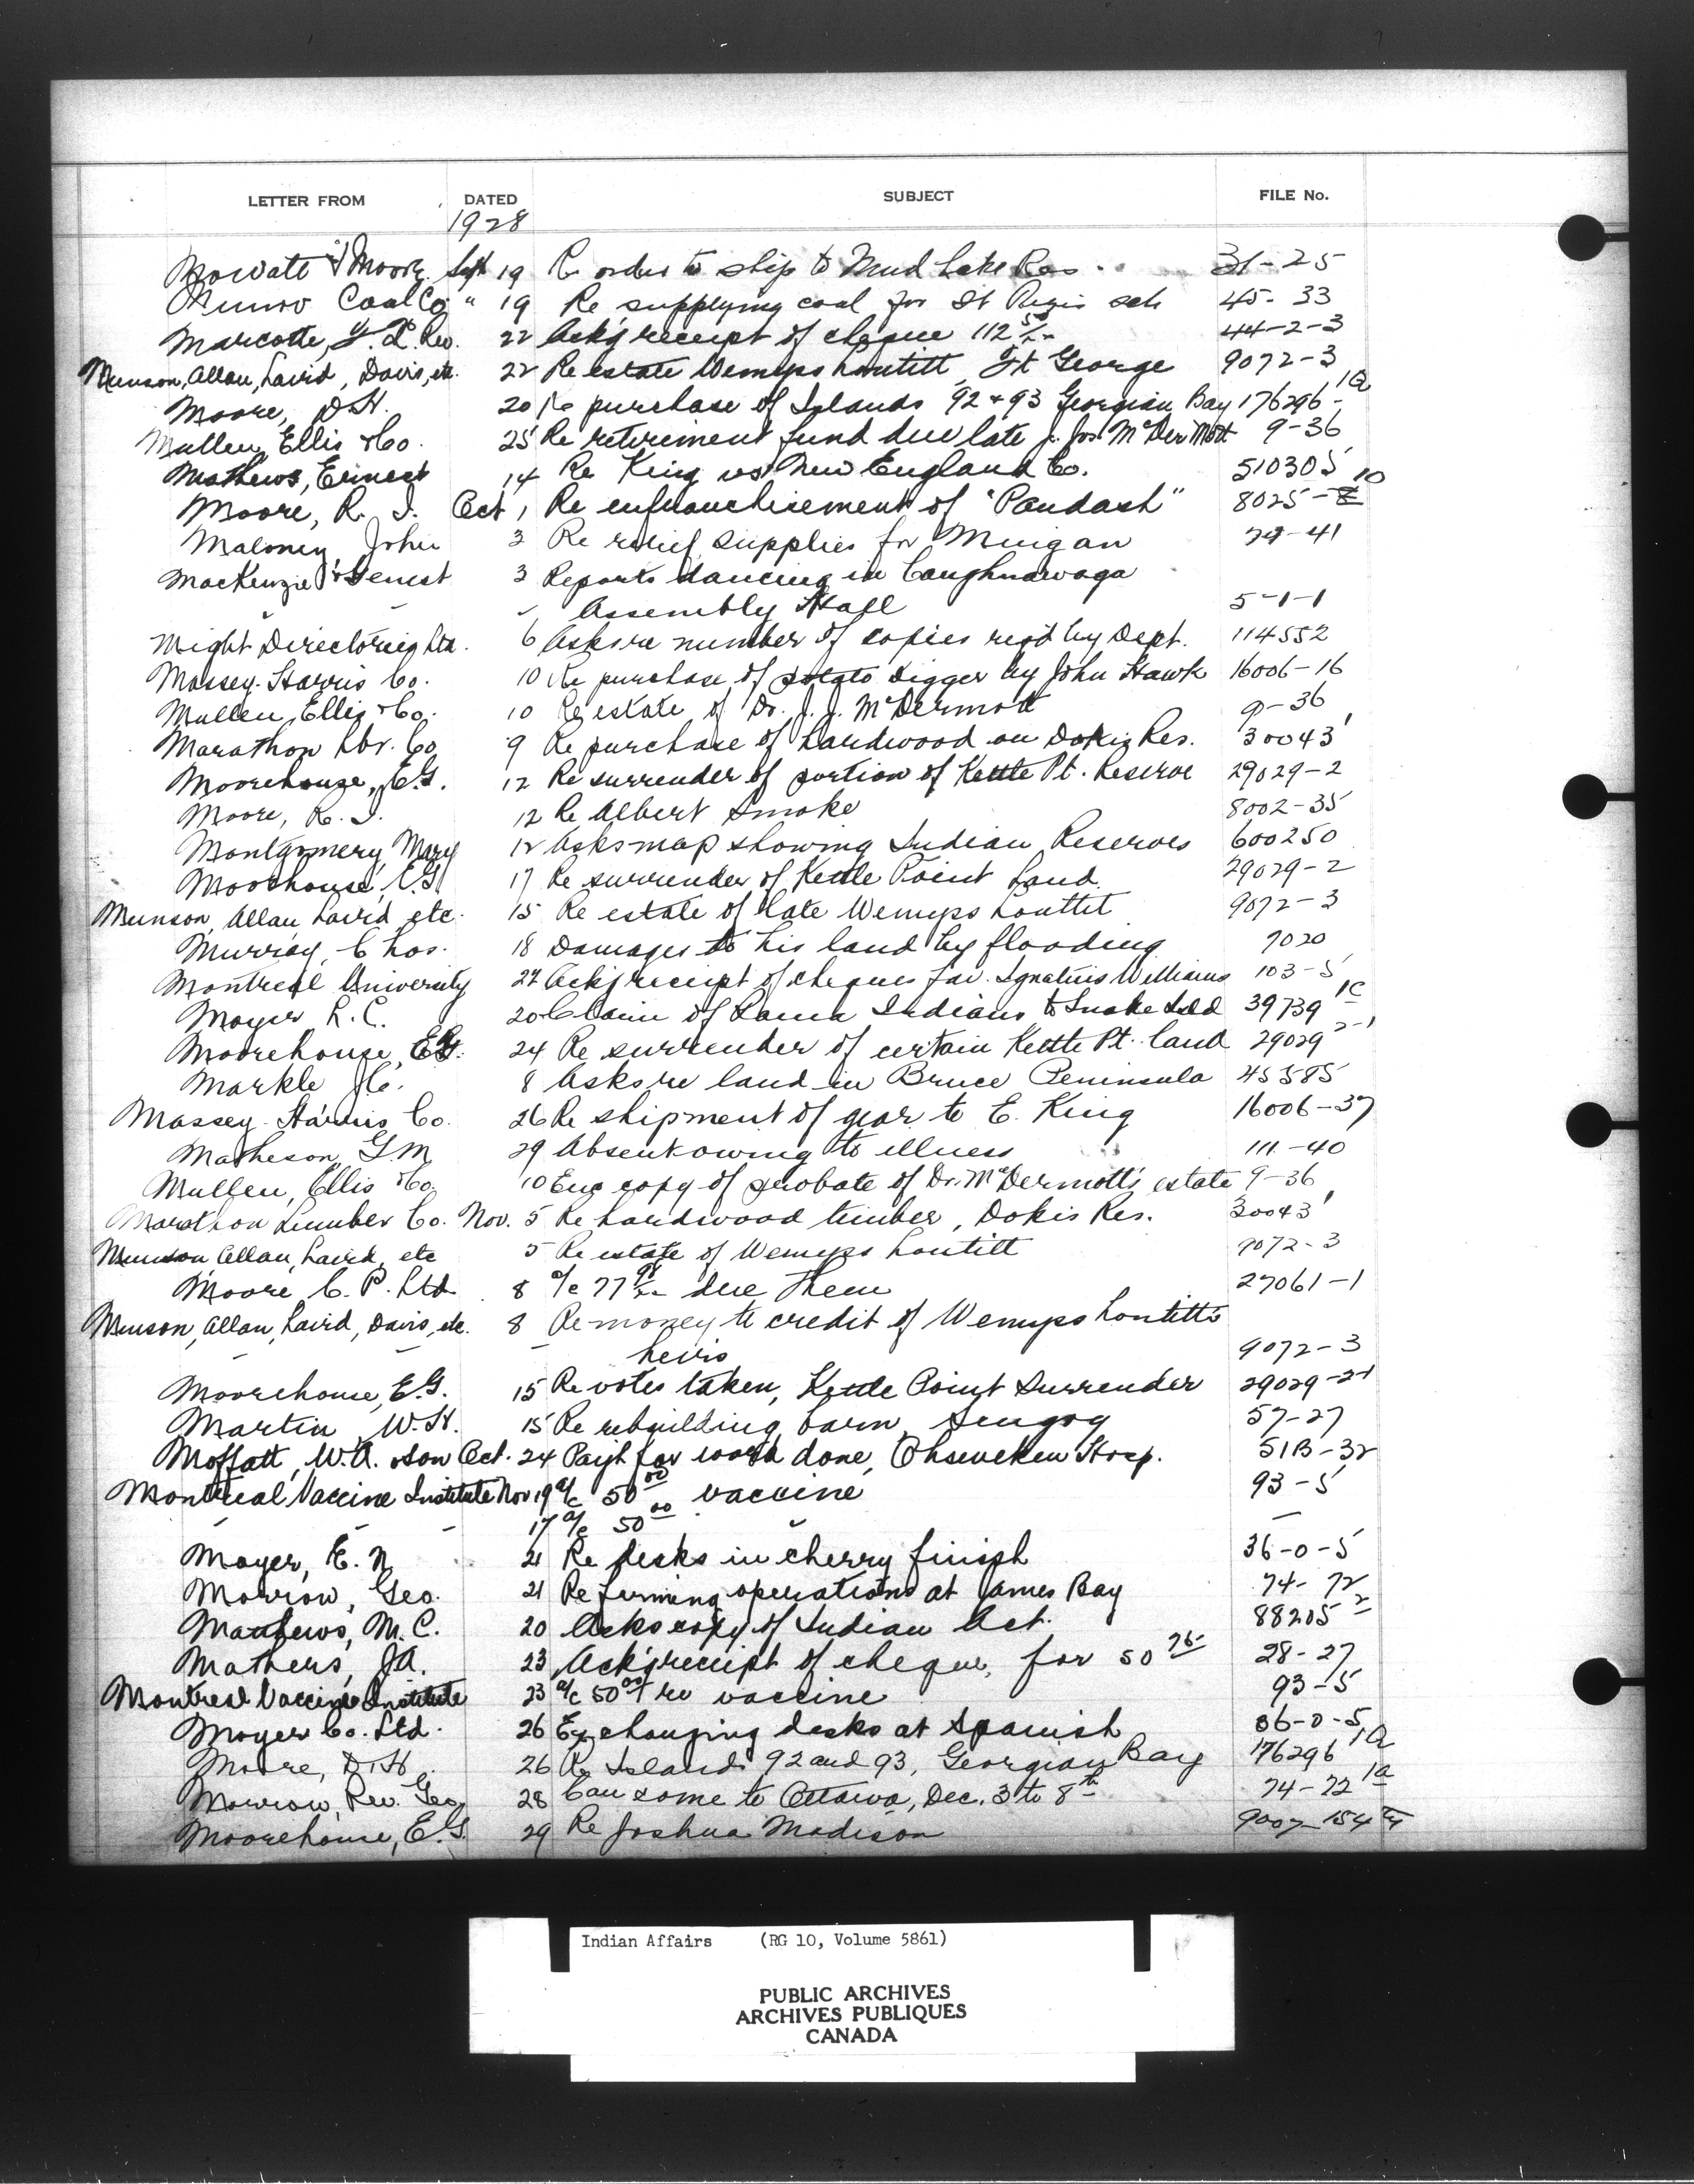 LETTER FROM DATED SUBJECT FILE No.
1928
Mowatt & Moore Sept 19 Re order to ship to Mud Lake Res. 31-25
Munro Coal Co " 19 Re supplying coal for St Regis sch 45-33
Marcotte, Rev. 22 Ackg receipt of cheque 112 50/xx 44-2-3
Munson, Allan, Laird, Davis, etc. 22 Re estate Wemyss Loutitt, Ft George 9072-3
Moore, D.H. 20 Re purchase of Islands 92 & 93 Georgian Bay 176296-1a
Mullen, Ellis & Co. 25 Re retirement fund due late J. Jos McDermott 9-36
Mathews, Ernest 14 Re King vs New England Co. 510305
Moore, R. J. Oct 1 Re enfranchisement of "Pandash" 8025-10
Maloney, John 3 Re relief supplies for Mingan 74-41
MacKenzie & Genest 3 Reports dancing in Caughnawaga
" " Assembly Hall 5-1-1
Might Directories Ltd. 6 Asks re number of copies reqd by Dept. 114552
Massey-Harris Co. 10 Re purchase of potato digger by John Hawk 16006-16
Mullen, Ellis & Co. 10 Re estate of Dr. J. J. McDermott 9-36
Marathon Lbr. Co 9 Re purchase of hardwood on Dokis Res. 30043-1
Moorehouse, E.G. 12 Re surrender of portion of Kettle Pt. Reserve 29029-2
Moore, R. J. 12 Re Albert Smoke 8002-35
Montgomery, Mary 12 Asks map showing Indian Reserves 600250
Moorhouse, E.G. 17 Re surrender of Kettle Point Land. 29029-2
Munson, Allan Laird etc. 15 Re estate of late Wemyss Louttit 9072-3
Murray, Chas. 18 Damages to his land by flooding 7020
Montreal University 24 Ackg receipt of cheques fav. Ignatius Williams 103-5
Moyer L. C. 20 Claim of Rama Indians to Snake Isld 39739 1c
Moorehouse, E.G. 24 Re surrender of certain Kettle Pt. land 29029 2-1
Markle J.C. 8 Asks re land in Bruce Peninsula 45585
Massey-Harris Co. 26 Re shipment of gear to E. King 16006-37
Matheson, G.M. 29 Absent owing to illness 111-40
Mullen, Ellis & Co. 10 Enc copy of probate of Dr. McDermott's estate 9-36
Marathon Lumber Co. Nov. 5 Re hardwood timber, Dokis Res. 30043-1
Munson, Allan, Laird, etc 5 Re estate of Wemyss Loutitt 9072-3
Moore C. P. Ltd. 8 a/c 77 98/xx due them 27061-1
Munson, Allan, Laird, Davis, etc. 8 Re money to credit of Wemyss Loutitt's
" " " heirs 9072-3
Moorehouse, E.G. 15 Re votes taken, Kettle Point Surrender 29029-2-1
Martin, W.H. 15 Re rebuilding barn, Scugog 57-27
Moffatt, W.A. & Son Oct. 24 Payt for work done, Ohsweken Hosp. 51B-32
Montreal Vaccine Institute Nov 19 a/c 50 00 vaccine 93-5
" " " 17 a/c 50 00 " "
Moyer, E. N. 21 Re desks in cherry finish 36-0-5
Morrow, Geo. 21 Re farming operations at James Bay 74-72
Mathews, M.C. 20 Asks copy of Indian Act. 88205 2
Mathers, J.A. 23 Ackg receipt of cheque, for 50 75 28-27
Montreal Vaccine Institute 23 a/c 50 00 re vaccine 93-5
Moyer Co. Ltd. 26 Exchanging desks at Spanish 36-0-5
Moore, D.H. 26 Re Islands 92 and 93, Georgian Bay 176296 1a
Morrow, Rev. Geo 28 Can come to Ottawa, Dec. 3 to 8th 74-72 1a
Moorehouse, E.G. 29 Re Joshua Madison 9007-154
Indian Affairs (RG 10, Volume 5861)
PUBLIC ARCHIVES
ARCHIVES PUBLIQUES
CANADA